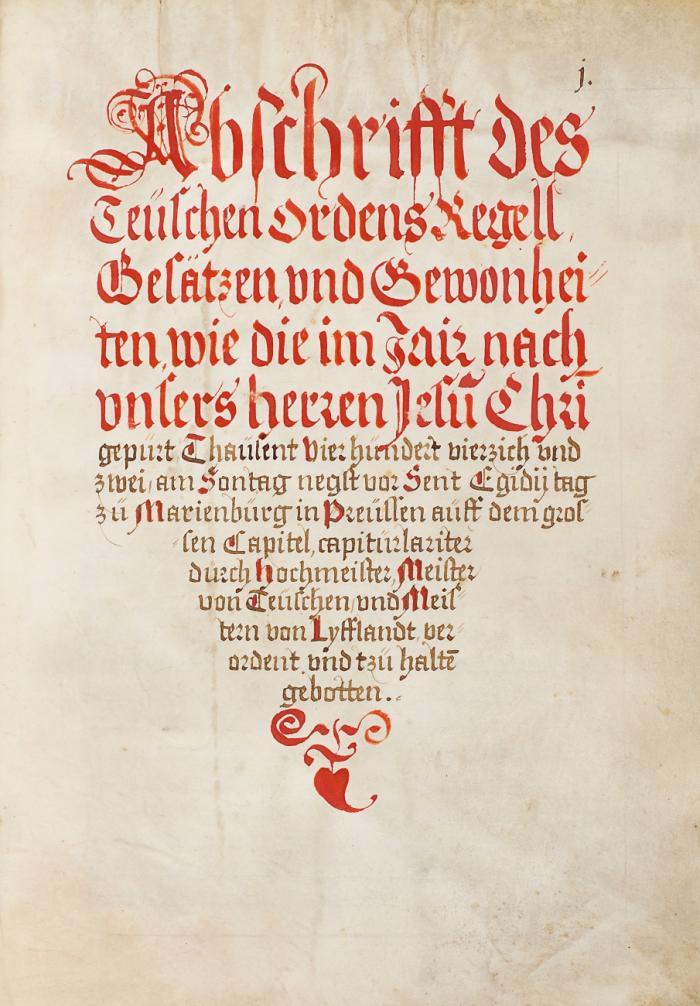 j.
Abschrifft des
Teüschen Ordens Regell,
Gesätzen, vnd Gewonhei⸗
ten, wie die im Jair nach
vnsers herren Jesu Chri
gepürt Thausent Vier hündert vierzich vnd
zwei, am Sontag negst vor Sent Egidij tag
zü Marienbürg in Preüssen auff dem gros⸗
sen Capitel, capitürlariter
durch Hochmeister, Meister
von Teüschen, vnd Meis⸗
tern von Lyfflandt, ver⸗
ordent, vnd tzü haltē
gebotten..